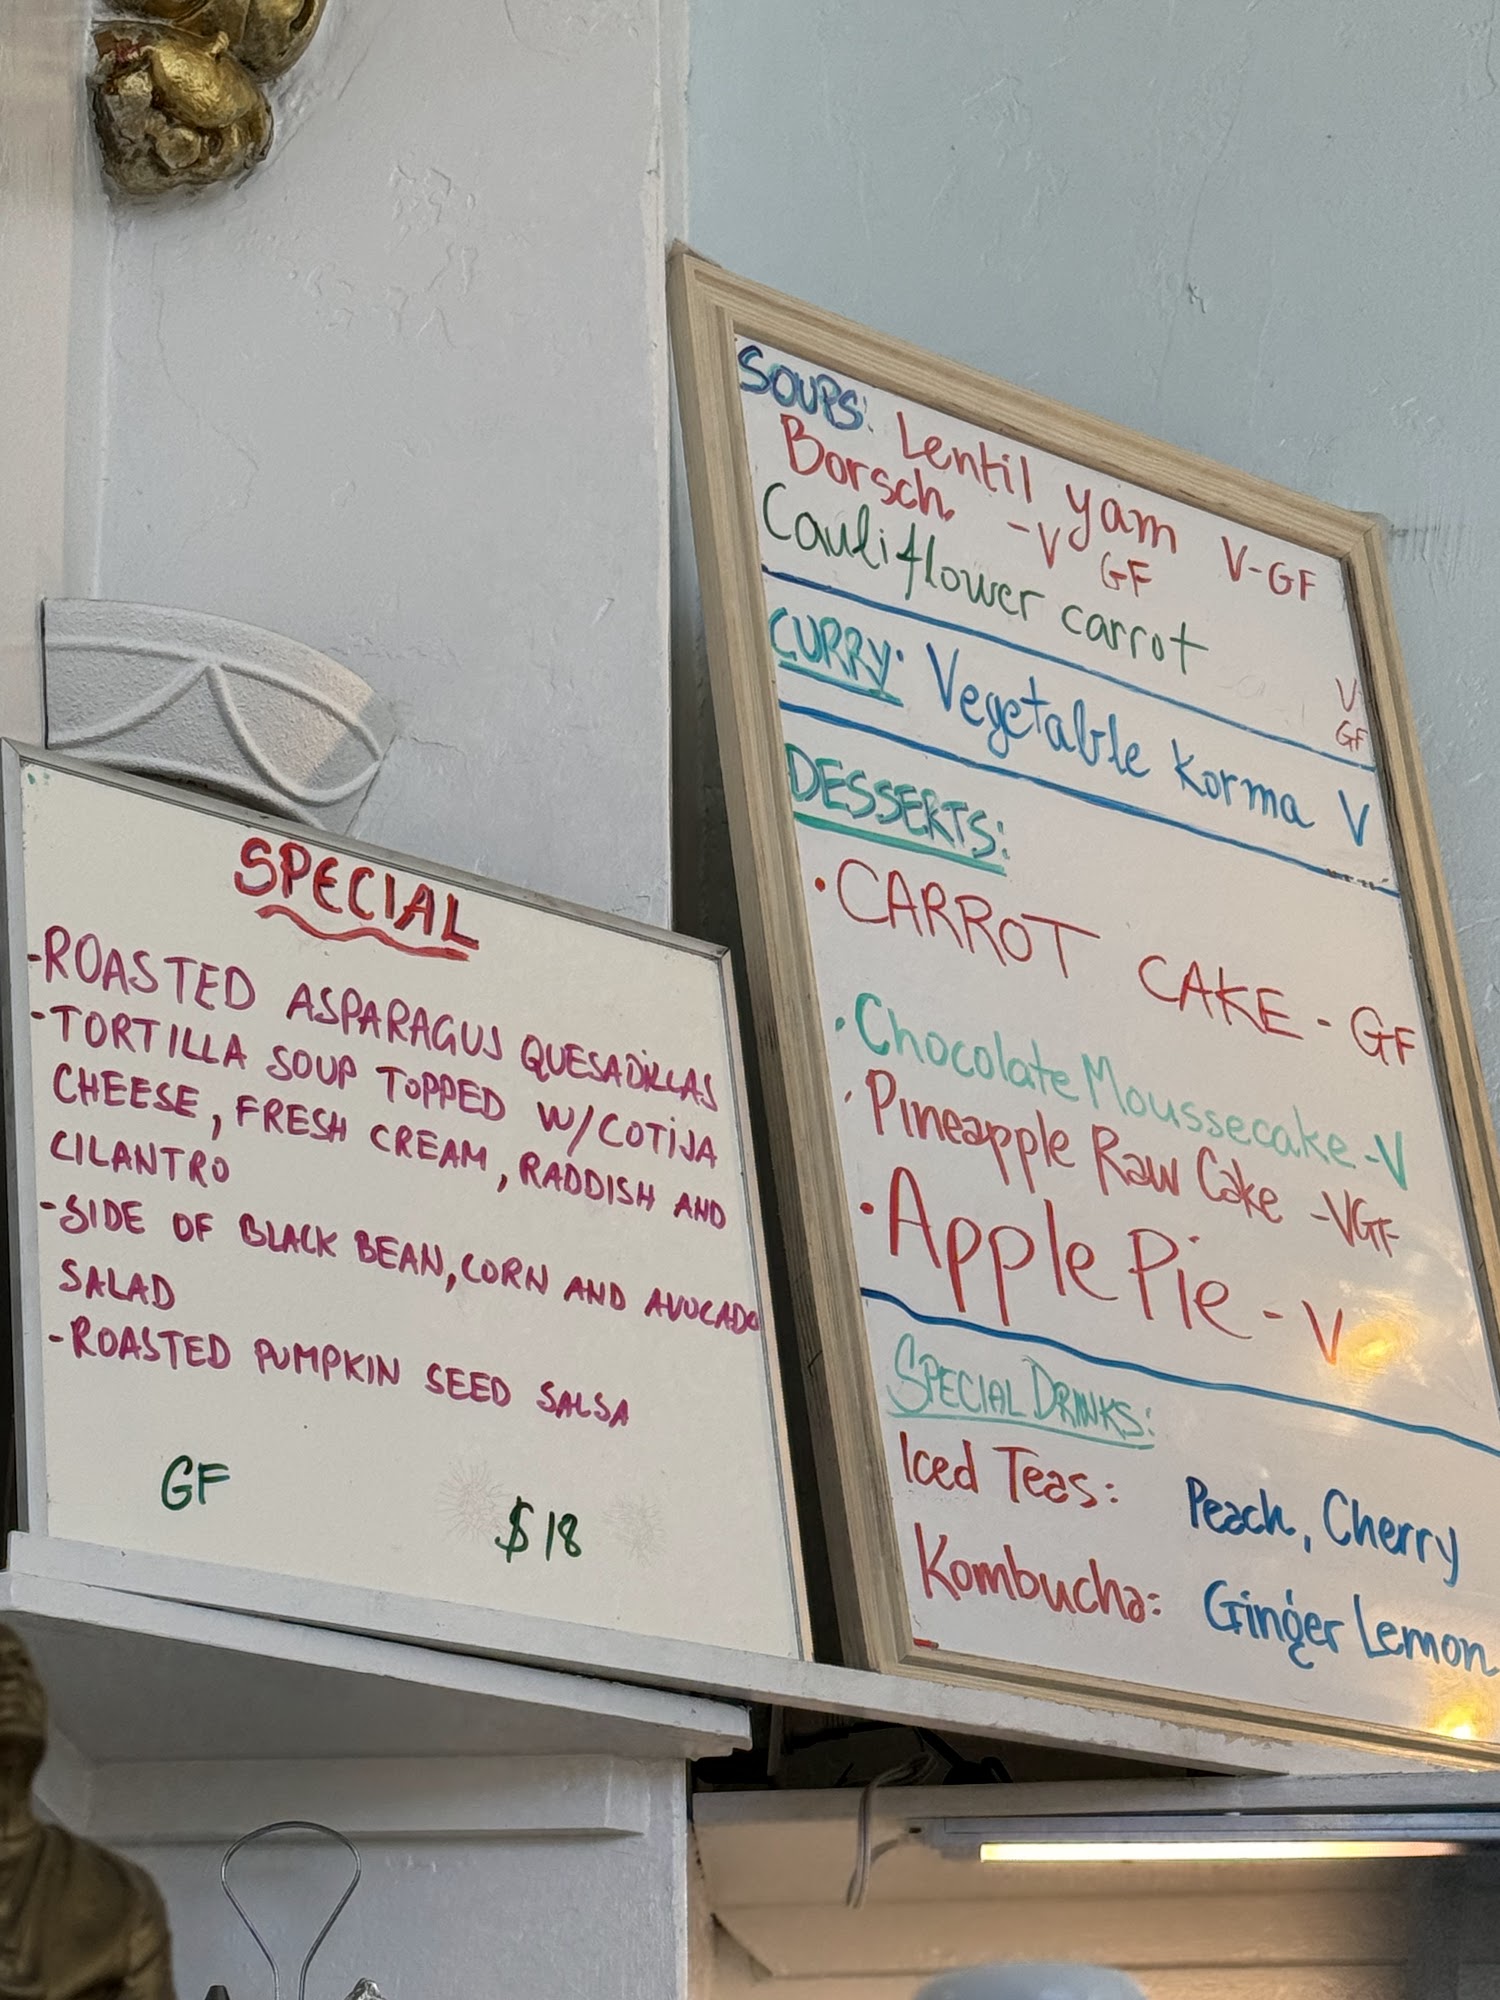 SPECIAL
-ROASTED ASPARAGUS QUESADILLAS
-TORTILLA SOUP TOPPED W/COTIJA
CHEESE, FRESH CREAM, RADDISH AND
CILANTRO
-SIDE OF BLACK BEAN, CORN AND AVOCADO
SALAD
-ROASTED PUMPKIN SEED SALSA
GF $18
SOUPS: Lentil yam V-GF
Borsch -V GF
Cauliflower carrot V GF
CURRY: Vegetable Korma V
DESSERTS:
• CARROT CAKE - GF
• Chocolate Moussecake - V
• Pineapple Raw Cake - VGF
• Apple Pie - V
SPECIAL DRINKS:
Iced Teas: Peach, Cherry
Kombucha: Ginger Lemon